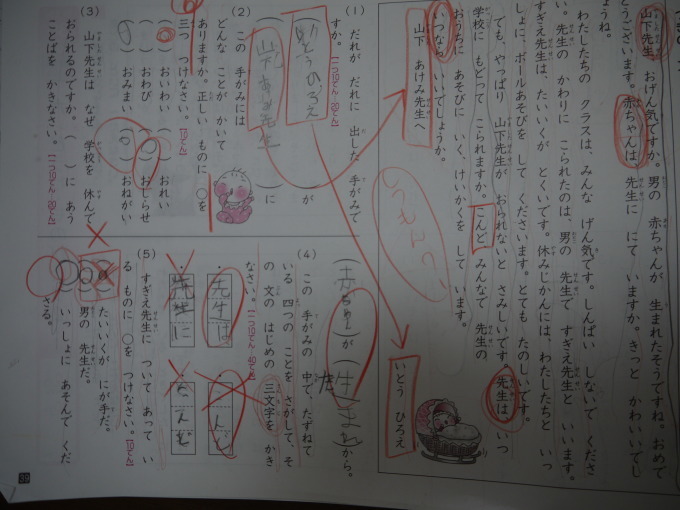 山下先生、おげん気ですか。男の 赤ちゃんが 生まれたそうですね。おめで
とうございます。赤ちゃんは、先生に にて いますか。きっと かわいいでし
ょうね。
わたしたちの クラスは、みんな げん気です。しんぱい しないで くださ
い。先生の かわりに こられたのは、男の 先生で すぎえ先生と いいます。
すぎえ先生は、たいいくが とくいです。休みじかんには、わたしたちと いっ
しょに、ボールあそびを して くださいます。とても たのしいです。
でも、やっぱり 山下先生が おられないと さみしいです。先生は、いつ
学校に もどって こられますか。こんど みんなで 先生の
おうちに あそびに いく、けいかくを して います。
いつなら いいでしょうか。
いとう ひろえ
山下 あけみ先生へ
しつもん
(1) だれが だれに 出した 手がみで
すか。
(いとうひろえ)が
(山下 あけみ先生)に
(2) この 手がみには
どんな ことが かいて
ありますか。正しい ものに ○を
三つ つけなさい。
( )おいわい ( )おれい
( )おわび (○)おしらせ
( )おみまい ( )おねがい
(3) 山下先生は なぜ 学校を 休んで
おられるのですか。( )に あう
ことばを かきなさい。
(赤ちゃん)が(生まれた)から。
(4) この 手がみの 中で、たずねて
いる 四つの ことを さがして、そ
の 文の はじめの 三文字を かき
なさい。
先生は
先生に
こんど
(5) すぎえ先生に ついて あって い
る ものに ○を つけなさい。
たいいくが にが手だ。
男の 先生だ。
いっしょに あそんで くだ
さる。
39